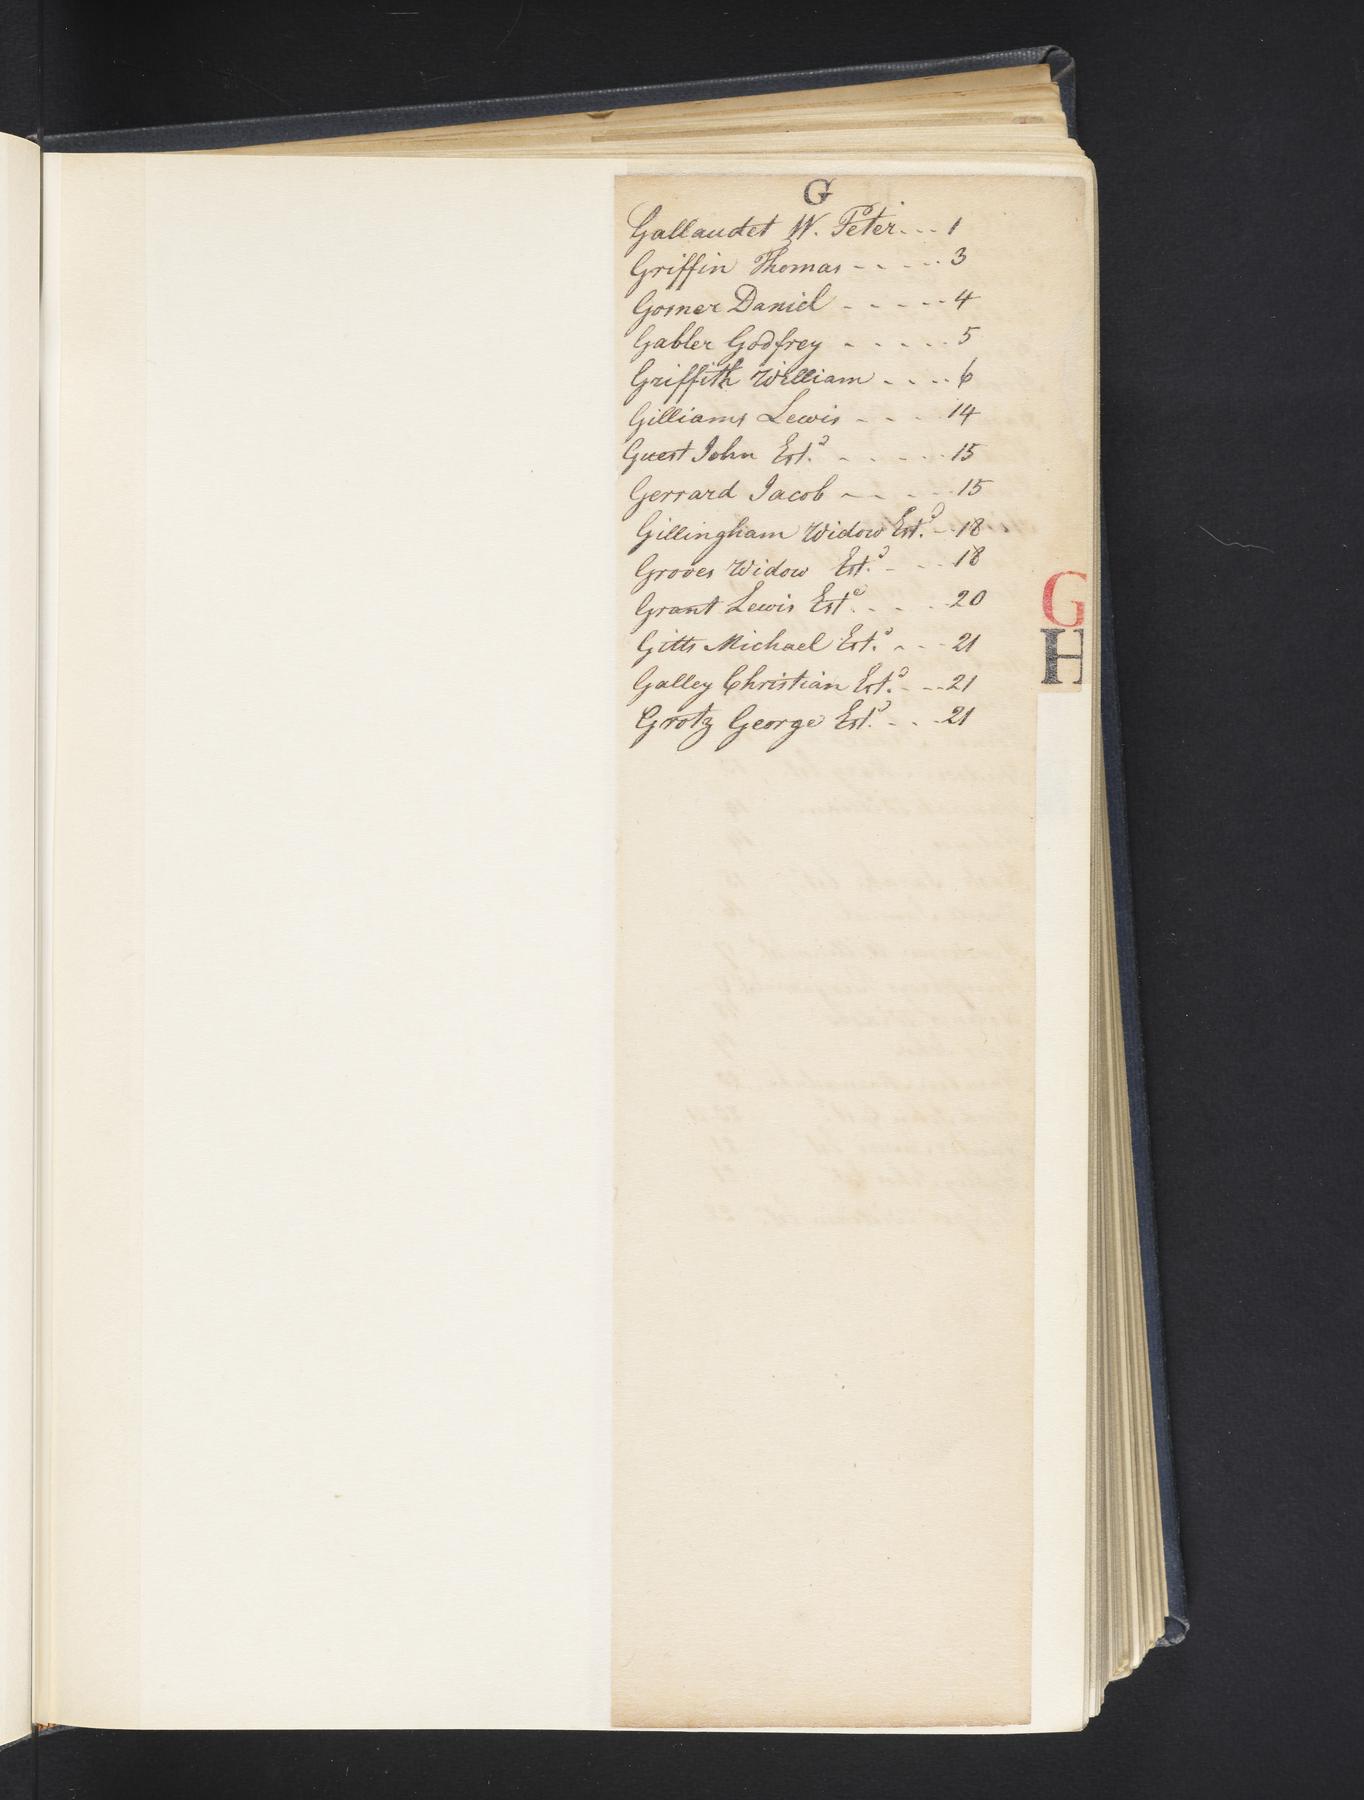 G
Gallaudet W. Peter... 1
Griffin Thomas - - - - - 3
Gosner Daniel - - - - - 4
Gabler Godfrey - - - - - 5
Griffith William - - - - 6
Gilliams Lewis - - - - 14
Guest John Est.ᵉ - - - - - 15
Gerrard Jacob - - - - - 15
Gillingham Widow Est.ᵉ - - 18
Groves Widow Est.ᵉ - - - 18
Grant Lewis Estᵉ. - - - 20
Gitts Michael Est.ᵉ - - - 21
Galley Christian Est.ᵉ - - - 21
Grotz George Est.ᵉ - - - 21
G
H